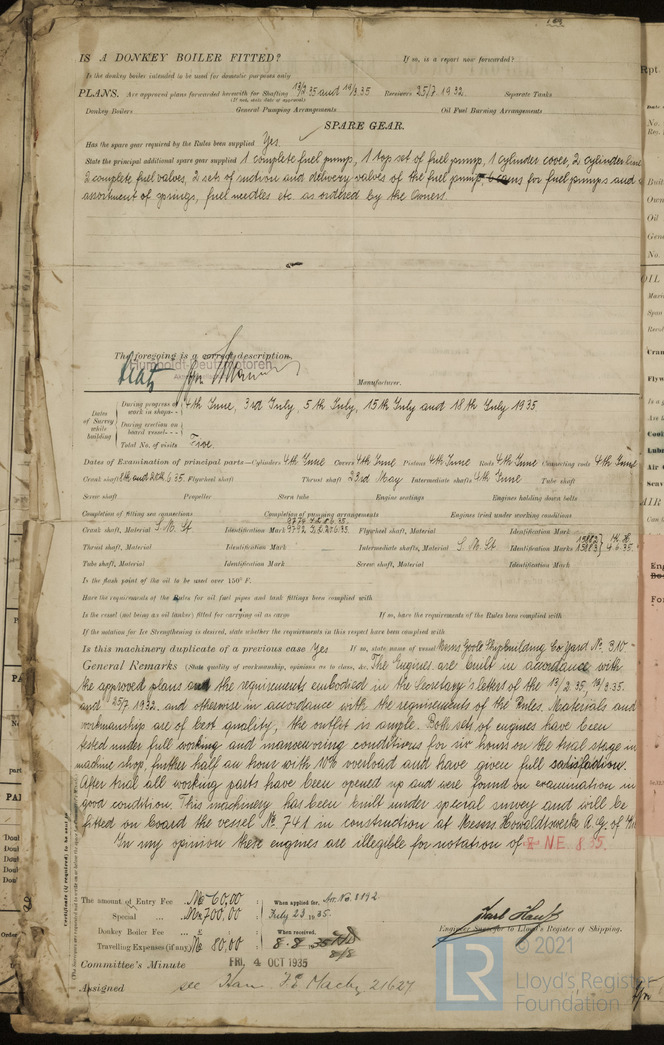 IS A DONKEY BOILER FITTED? If so, is a report now forwarded?
Is the donkey boiler intended to be used for domestic purposes only
PLANS. Are approved plans forwarded herewith for Shafting 13/2 35 and 19/3.35 Receivers 25/7.1932 Separate Tanks
(If not, state date of approval)
Donkey Boilers General Pumping Arrangements Oil Fuel Burning Arrangements
SPARE GEAR.
Has the spare gear required by the Rules been supplied Yes
State the principal additional spare gear supplied 1 complete fuel pump, 1 top set of fuel pump, 1 cylinder cover, 2 cylinder
2 complete fuel valves, 2 sets of suction and delivery valves of the fuel pump, 6 cams for fuel pumps and
assortment of springs, fuel needles etc. as ordered by the Owners.
The foregoing is a correct description,
Humboldt-Deutzmotoren
Manufacturer.
Dates of Survey while building
During progress of work in shops - - 4th June, 3rd July, 5th July, 15th July and 18th July 1935.
During erection on board vessel - - -
Total No. of visits Five.
Dates of Examination of principal parts—Cylinders 4th June Covers 4th June Pistons 4th June Rods 4th June Connecting rods 4th June
Crank shaft 8th and 20th 6 35. Flywheel shaft Thrust shaft 23rd May Intermediate shafts 4th June Tube shaft
Screw shaft Propeller Stern tube Engine seatings Engines holding down bolts
Completion of fitting sea connections Completion of pumping arrangements Engines tried under working conditions
Crank shaft, Material S. M. St Identification Mark Flywheel shaft, Material Identification Mark
Thrust shaft, Material Identification Mark Intermediate shafts, Material S. M. St Identification Marks 15882 15883 4.6.35.
Tube shaft, Material Identification Mark Screw shaft, Material Identification Mark
Is the flash point of the oil to be used over 150° F.
Have the requirements of the Rules for oil fuel pipes and tank fittings been complied with
Is the vessel (not being an oil tanker) fitted for carrying oil as cargo If so, have the requirements of the Rules been complied with
If the notation for Ice Strengthening is desired, state whether the requirements in this respect have been complied with
Is this machinery duplicate of a previous case Yes If so, state name of vessel Messrs Goole Shipbuilding Co Yard No. 310 -
General Remarks (State quality of workmanship, opinions as to class, &c. The Engines are built in accordance with
the approved plans and the requirements embodied in the Secretary's letters of the 13/2 35, 19/3.35.
and 25/7 1932. and otherwise in accordance with the requirements of the Rules. Materials and
workmanship are of best quality, the outlet is ample. Both sets of engines have been
tested under full working and manoeuvring conditions for six hours on the trial stage in
machine shop, further half an hour with 10% overload and have given full satisfaction.
After trial all working parts have been opened up and were found on examination in
good condition. This machinery has been built under special survey and will be
fitted on board the vessel No. 741 in construction at Messrs. Howaldtswerke A.G. of
In my opinion these engines are illegible for notation of NE 8.35.
The amount of Entry Fee .. Mk 60,00 When applied for, Acc. No. 8192
Special ... Mk 700,00 July 23 1935.
Donkey Boiler Fee ... £ When received,
Travelling Expenses (if any) Mk 80,00 8.8
Engineer Surveyor to Lloyd's Register of Shipping.
Committee's Minute FRI. 4 OCT 1935
Assigned see Ham F.E. Machy 21627
© 2021
Lloyd's Register
Foundation
LR